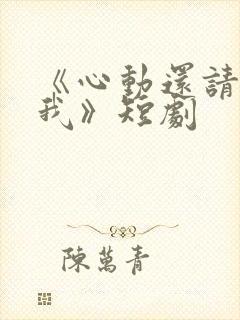 《心動還請
我》短劇
陳萬青